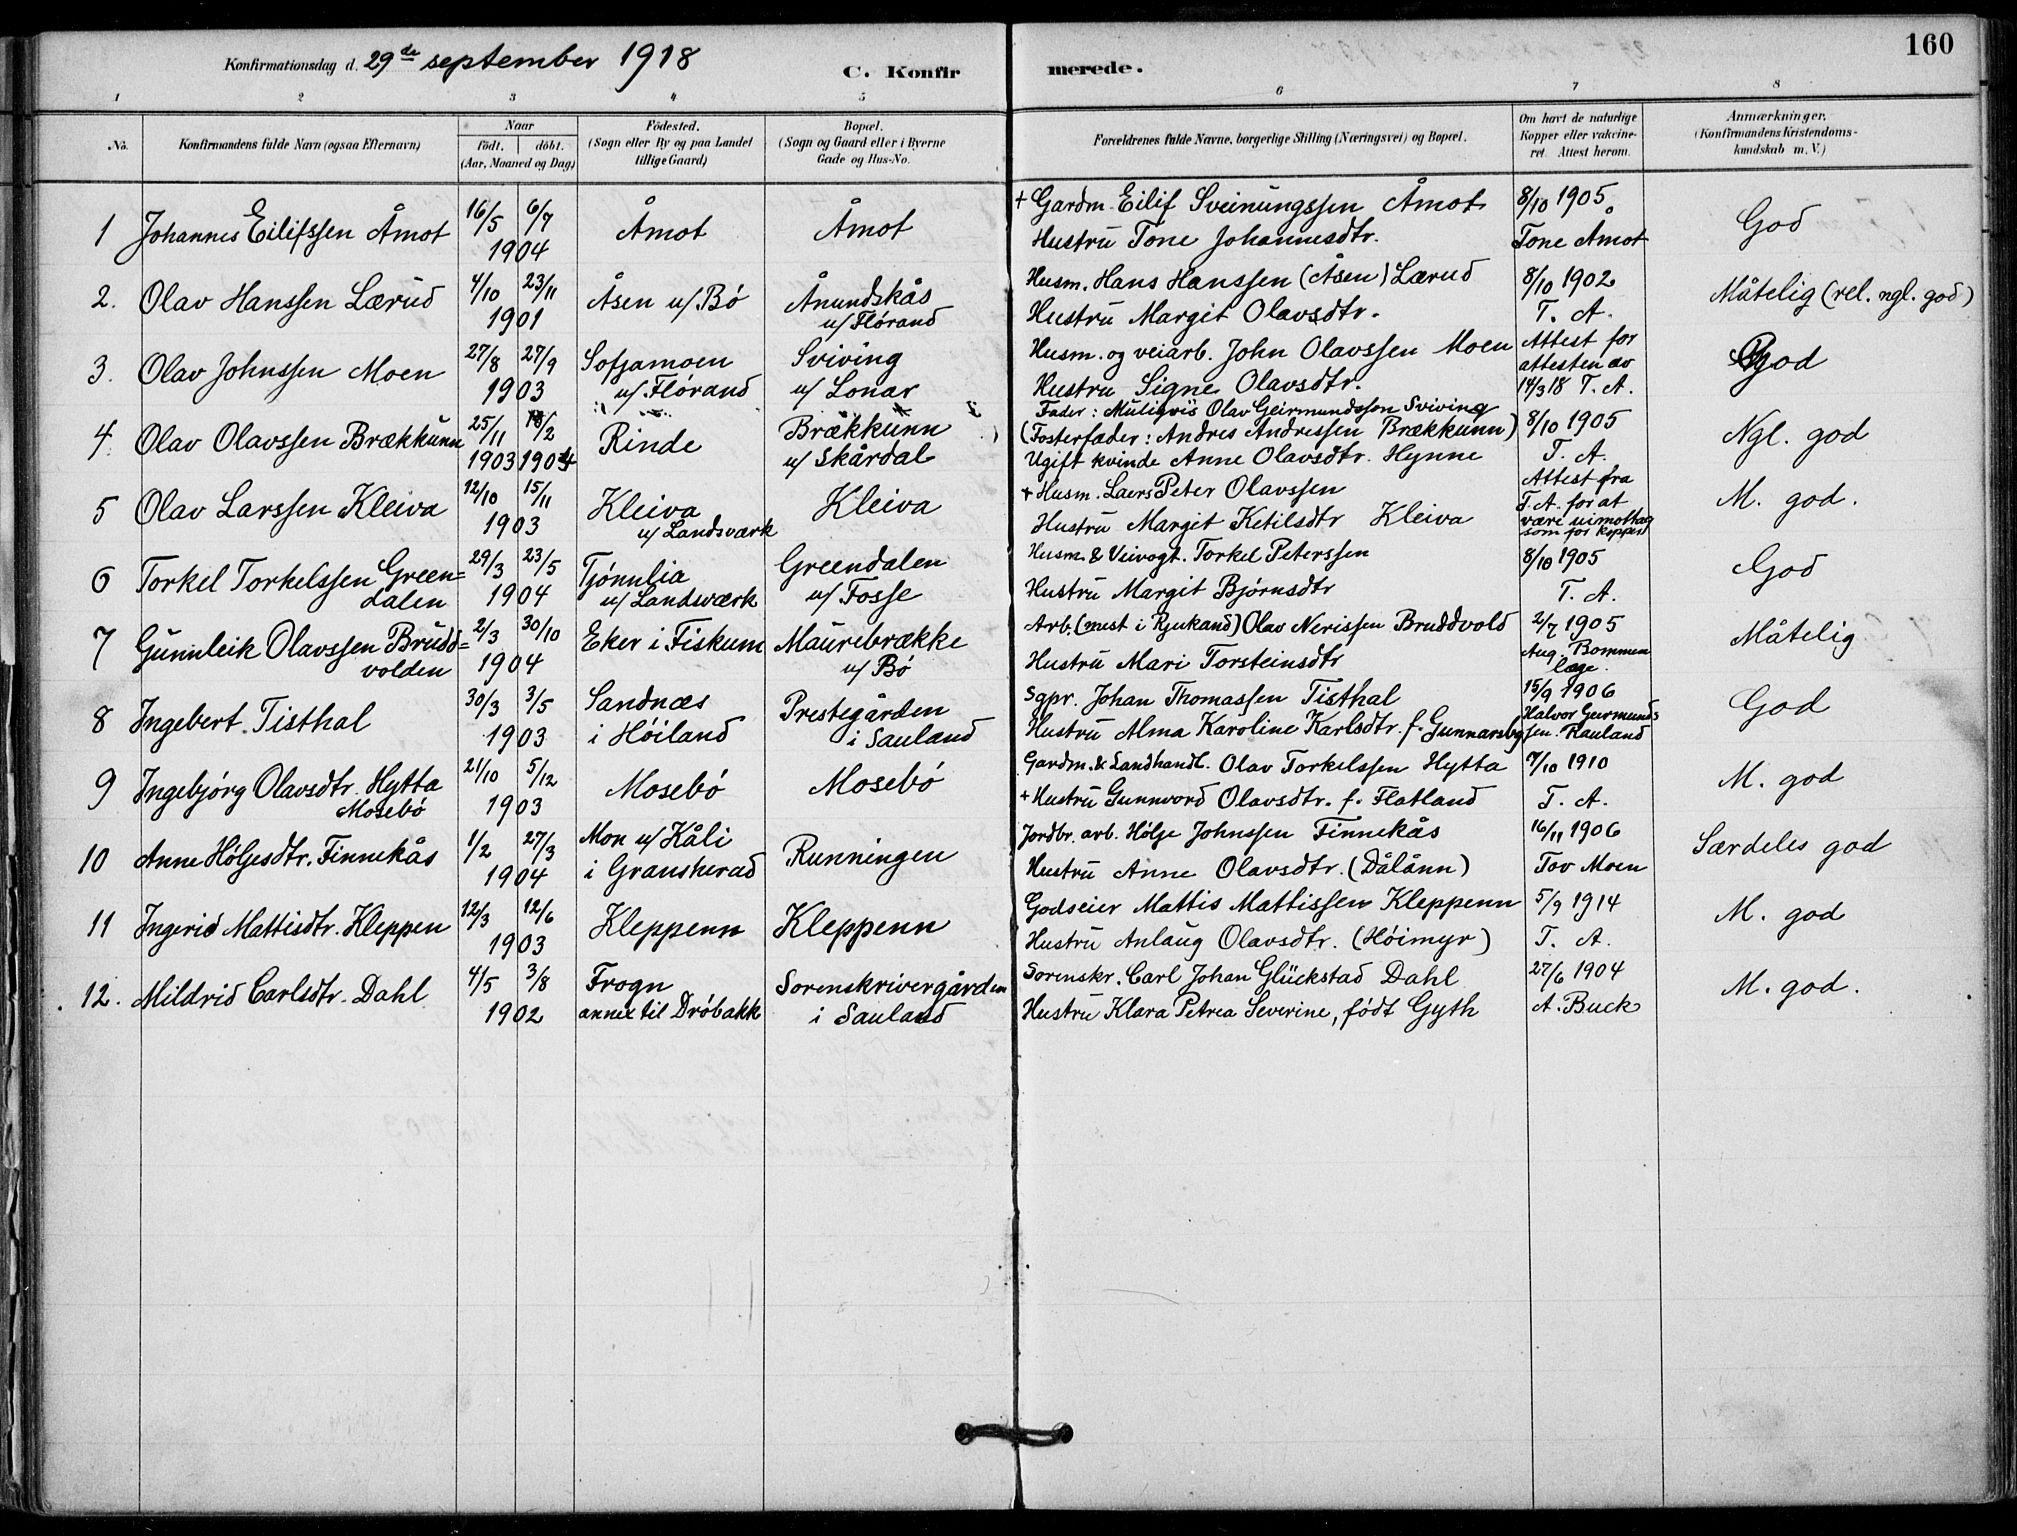 160
Konfirmationsdag d. 29de september 1918
C. Konfir merede.
1 2 3 4 5 6 7 8
No.
Konfirmandens fulde Navn (ogsaa Efternavn)
Naar
födt. döbt.
(Aar, Maaned og Dag)
Födested.
(Sogn eller By og paa Landet
tillige Gaard)
Bopæl.
(Sogn og Gaard eller i Byerne
Gade og Hus-No.
Forældrenes fulde Navne, borgerlige Stilling (Næringsvei) og Bopæl.
Om havt de naturlige
Kopper eller vakcine-
ret. Attest herom.
Anmærkninger.
(Konfirmandens Kristendoms-
kundskab m. V.)
1 Johannes Eilifssen Åmot 16/5 6/7 Åmot Åmot + Gardm. Eilif Sveinungssen Åmot 8/10 1905 God
1904 Hustru Tone Johannesdtr. Tone Åmot
2. Olav Hanssen Lærud 4/10 23/11 Åsen u/ Bó Ånundskås Husm. Hans Hanssen (Åsen) Lærud 8/10 1902 Måtelig (rel. ngl. god)
1901 u/ Flórand Hustru Margit Olavsdtr. T. A.
3. Olav Johnssen Moen 27/8 27/9 Sofjamoen Sviving Husm. og veiarb. John Olavssen Moen Attest for God
1903 u/ Flórand u/ Lonar Hustru Signe Olavsdtr. attesten av
14/3 18 T. A.
Fader: Muligvis Olav Geirmundssen Sviving
4 Olav Olavssen Brækkunn 25/11 18/2 Rinde Brækkunn (Fosterfader: Andres Andressen Brækkunn) 8/10 1905 Ngl. god
1903 1904 u/ Skårdal Ugift kvinde Anne Olavsdtr. Hynne T. A.
5 Olav Larssen Kleiva 12/10 15/11 Kleiva Kleiva + Husm. Laers Peter Olavssen Attest fra M. god.
1903 u/ Landsværk Hustru Margit Ketilsdtr Kleiva T. A. for at
være uimottag
som for kopper
6 Torkel Torkelssen Green= 29/3 23/5 Tjónnlia Greendalen Husm. & Veivogt. Torkel Peterssen 8/10 1905 God
dalen 1904 u/ Landsværk u/ Fosse Hustru Margit Bjørnsdtr T. A.
7 Gunnleik Olavssen Brudd= 2/3 30/10 Eker i Fiskum Maurebrække Arb. (mest i Rjukand) Olav Nerissen Bruddvold 2/7 1905 Måtelig
volden 1904 u/ Bó Hustru Mari Torsteinsdtr Aug. Bommen
læge.
8 Ingebert Tisthal 30/3 3/5 Sandnæs Prestegården Sgpr. Johan Thomassen Tisthal 15/9 1906 God
1903 i Höiland i Sauland Hustru Alma Karoline Karlsdtr. f. Gunnarsby Halvor Geirmunds
sen. Rauland
9 Ingebjórg Olavsdtr. Hytta 21/10 5/12 Mosebó Mosebó Gardm. & Landhandl. Olav Torkelssen Hytta 7/10 1910 M. god
Mosebó 1903 + Hustru Gunnvord Olavsdtr. f. Flatland T. A.
10 Anne Hóljesdtr. Finnekås 1/2 27/3 Mon u/ Kåli Runningen Jordbr. arb. Hólje Johnssen Finnekås 16/11 1906 Særdeles god
1904 i Gransherad Hustru Anne Olavsdtr. (Dålånn) Tov Moen
11 Ingerid Mattisdtr. Kleppen 12/3 12/6 Kleppenn Kleppenn Godseier Mattis Mattissen Kleppenn 5/9 1914 M. god
1903 Hustru Anlaug Olavsdtr. (Hóimyr) T. A.
12. Mildrid Carlsdtr. Dahl 4/5 3/8 Frogn Sorenskrivergården Sorenskr. Carl Johan Glückstad Dahl 27/6 1904 M. god.
1902 annex til Dróbakk i Sauland Hustru Klara Petrea Severine, født Gyth A. Buck